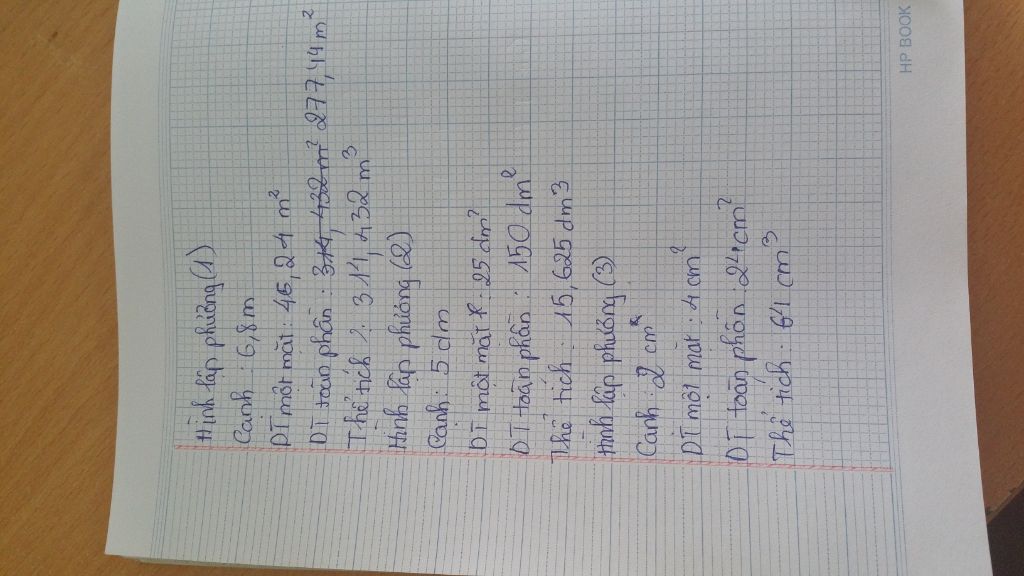 Hình lập phương (1)
Cạnh : 6,8 m
DT một mặt : 46,24 m²
DT toàn phần : 314,432 m² 277,44 m²
Thể tích : 314,432 m³
Hình lập phương (2)
Cạnh : 5 dm
DT một mặt : 25 dm²
DT toàn phần : 150 dm²
Thể tích : 15,625 dm3
Hình lập phương (3)
Cạnh : 2 cm
DT một mặt : 4 cm²
DT toàn phần : 24 cm²
Thể tích : 64 cm³
HP BOOK